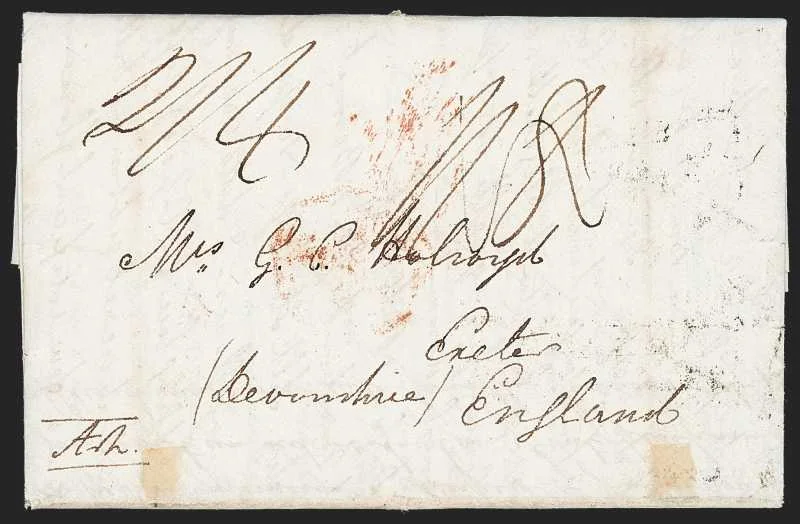 2/4 1/8
Mrs G. C. Holroyd
Exeter
(Devonshire) England